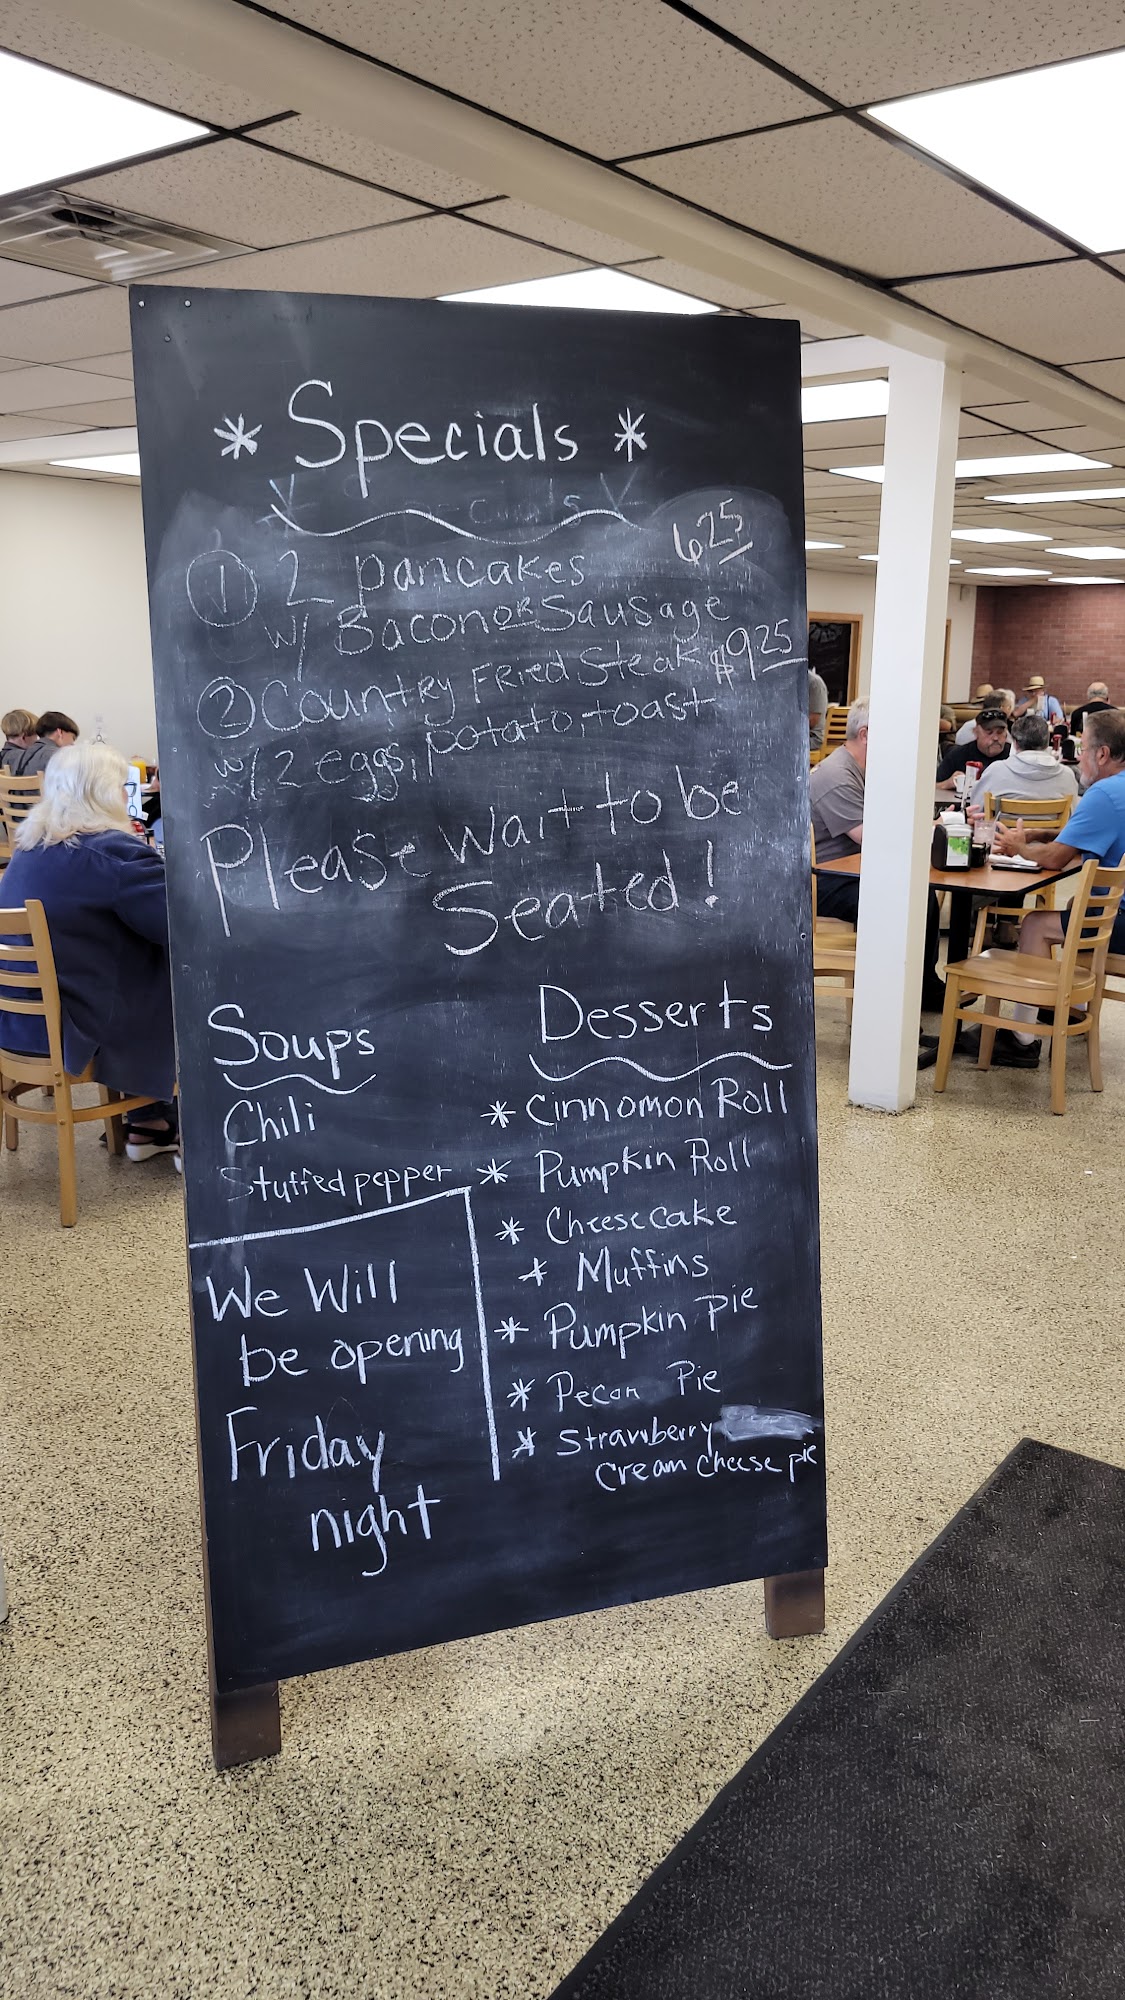 * Specials *
① 2 pancakes 6 25
w/ Bacon or Sausage
② Country Fried Steak $9 25
w/ 2 eggs, potato, toast
Please wait to be
Seated!
Soups
Chili
Stuffed pepper
We Will
be opening
Friday
night
Desserts
* Cinnomon Roll
* Pumpkin Roll
* Cheesecake
* Muffins
* Pumpkin pie
* Pecan Pie
* Strawberry
cream cheese pie